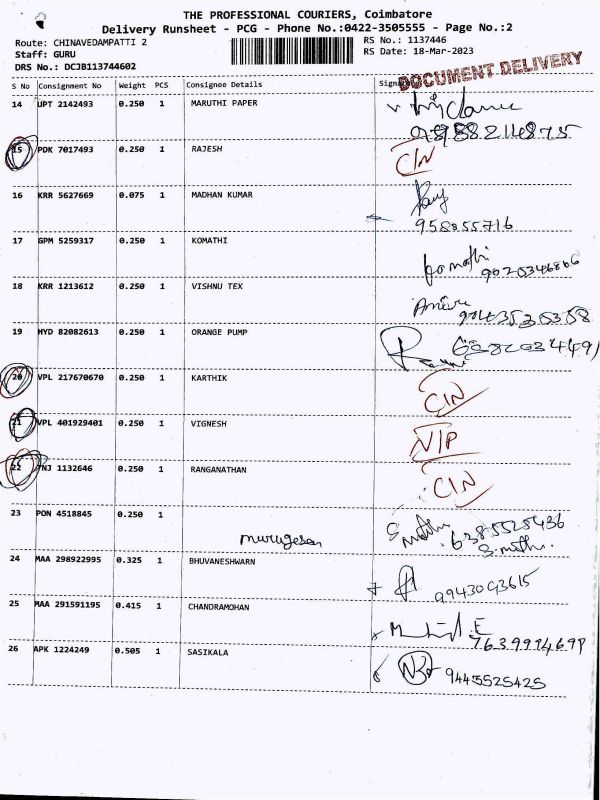 THE PROFESSIONAL COURIERS, Coimbatore
Delivery Runsheet - PCG - Phone No.:0422-3505555 - Page No.:2
Route: CHINAVEDAMPATTI 2 RS No.: 1137446
Staff: GURU RS Date: 18-Mar-2023
DRS No.: DCJB113744602
DOCUMENT DELIVERY
S No Consignment No Weight PCS Consignee Details
14 UPT 2142493 0.250 1 MARUTHI PAPER
15 PDK 7017493 0.250 1 RAJESH C/N
16 KRR 5627669 0.075 1 MADHAN KUMAR
958855716
17 GPM 5259317 0.250 1 KOMATHI
Komathi
18 KRR 1213612 0.250 1 VISHNU TEX
19 HYD 82082613 0.250 1 ORANGE PUMP
20 VPL 217670670 0.250 1 KARTHIK C/N
21 VPL 401929401 0.250 1 VIGNESH N/P
22 TNJ 1132646 0.250 1 RANGANATHAN C/N
23 PON 4518845 0.250 1
murugesan 6385525436
S. mathi.
24 MAA 298922995 0.325 1 BHUVANESHWARN
9943093615
25 MAA 291591195 0.415 1 CHANDRAMOHAN
26 APK 1224249 0.505 1 SASIKALA
9445525425